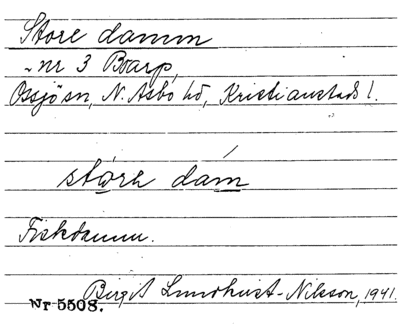 Store damm
~ nr 3 Boarp,
Össjö sn, N. Åsbo hd, Kristianstads l.
stơrə dám
Fiskdamm.
Birgit Lundkvist-Nilsson, 1941.
Nr 5508.